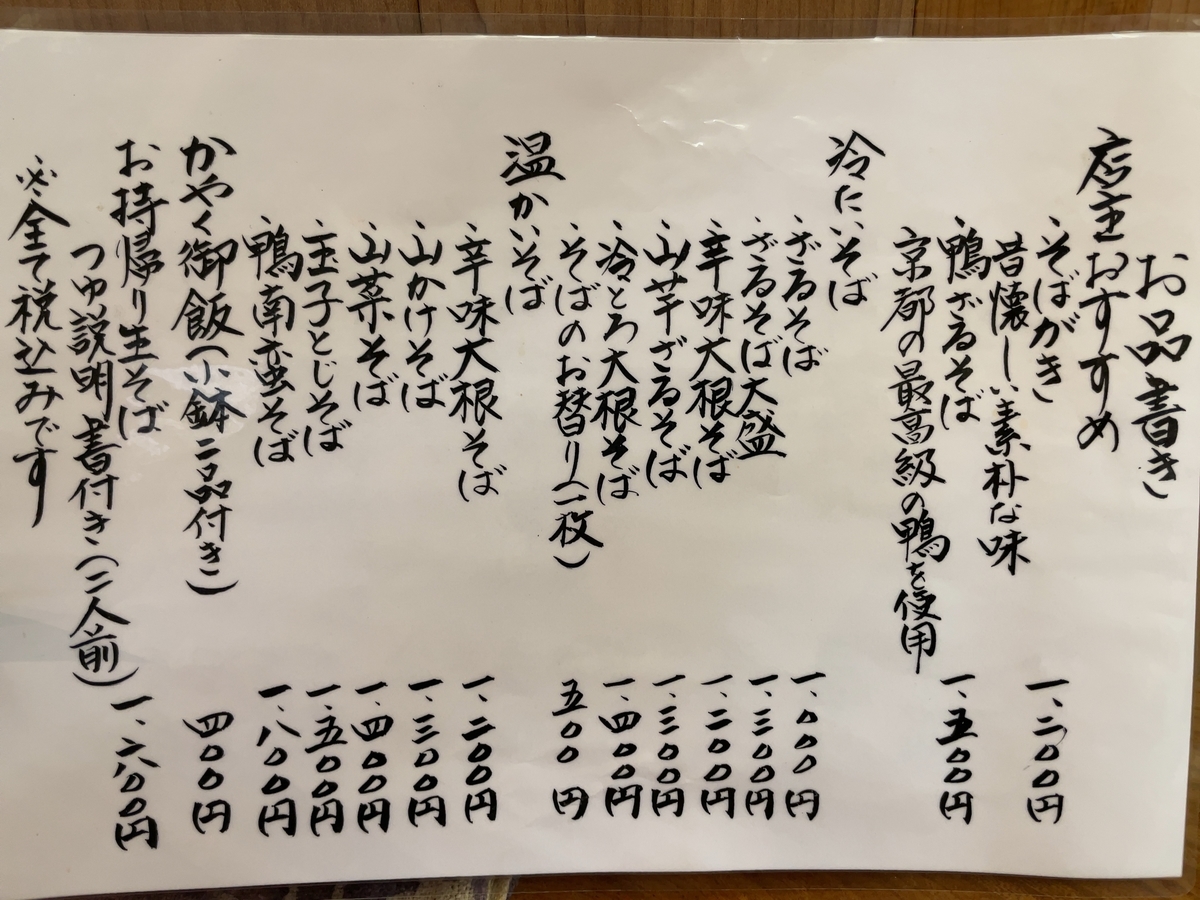 お品書き
店主おすすめ
・そばがき 一、二〇〇円
昔懐しい素朴な味
・鴨ざるそば 一、五〇〇円
京都の最高級の鴨を使用
冷たいそば
・ざるそば 一、〇〇〇円
・ざるそば大盛 一、三〇〇円
・辛味大根そば 一、二〇〇円
・山芋ざるそば 一、三〇〇円
・冷とろ大根そば 一、四〇〇円
・そばのお替り(一枚) 五〇〇円
温かいそば
・辛味大根そば 一、二〇〇円
・山かけそば 一、三〇〇円
・山菜そば 一、四〇〇円
・玉子とじそば 一、五〇〇円
・鴨南蛮そば 一、八〇〇円
かやく御飯(小鉢二品付き) 四〇〇円
お持帰り生そば 一、六〇〇円
つゆ説明書付き(二人前)
※全て税込みです